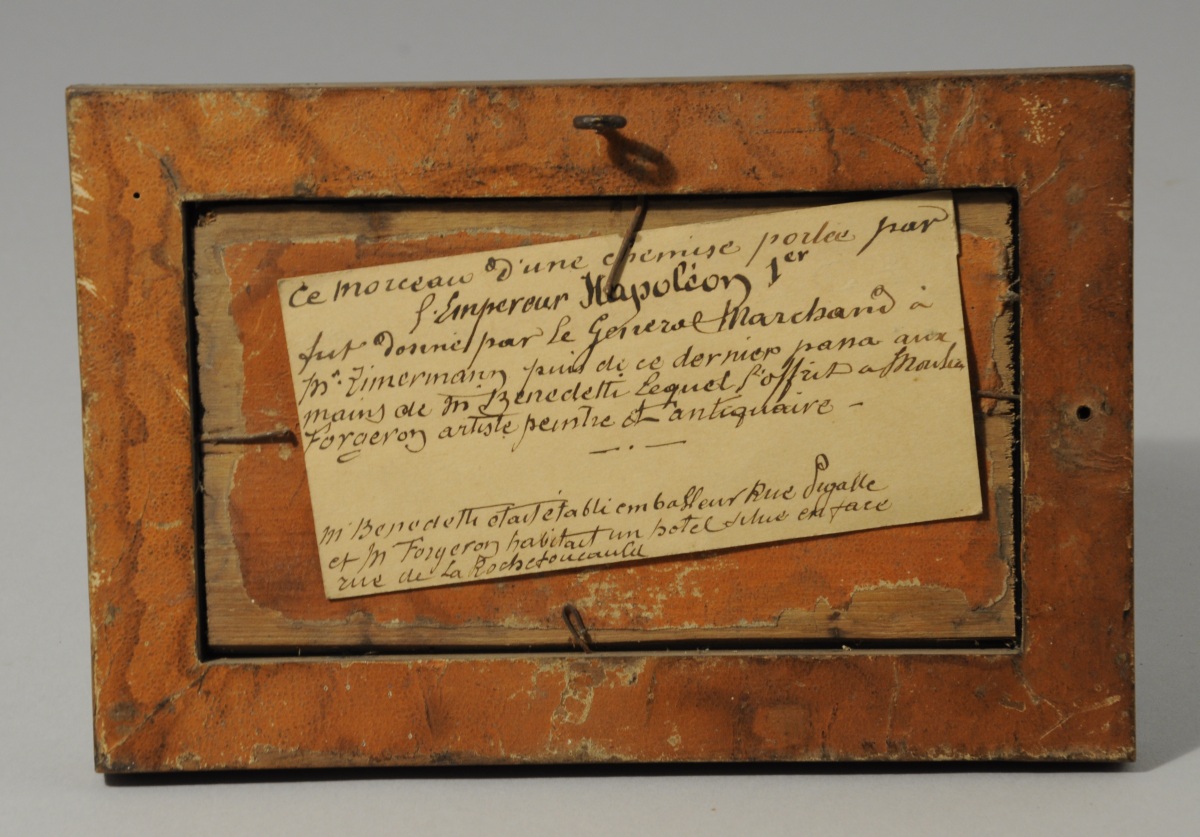 Ce morceau d'une chemise portée par
l'Empereur Napoléon 1er
fut donné par le General Marchand à
Mr. Zimermann puis de ce dernier passa aux
mains de Mr Benedetti lequel l'offrit a
Forgeron artiste peintre et antiquaire –
— . —
Mr Benedetti etait établi emballeur Rue Pigalle
et M Forgeron habitait un hotel situe en face
rue de La Rochefoucauld